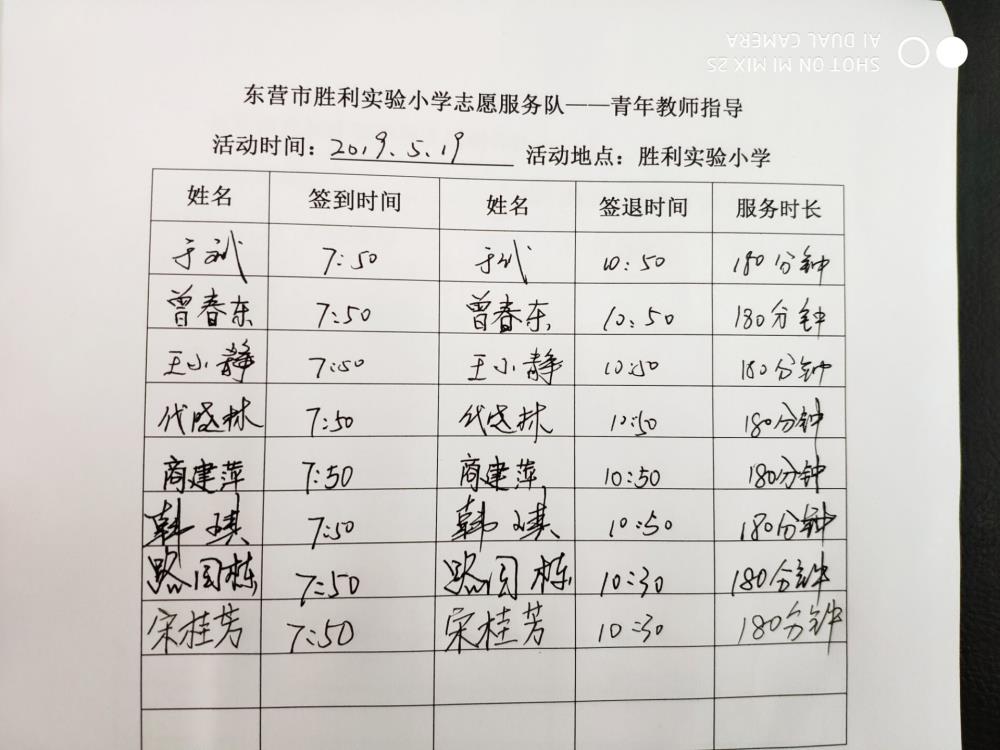 SHOT ON MI MIX 2S
AI DUAL CAMERA
东营市胜利实验小学志愿服务队——青年教师指导
活动时间：2019.5.19 活动地点：胜利实验小学
姓名 签到时间 姓名 签退时间 服务时长
于斌 7:50 于斌 10:50 180分钟
曾春东 7:50 曾春东 10:50 180分钟
王小静 7:50 王小静 10:50 180分钟
代盛林 7:50 代盛林 10:50 180分钟
商建萍 7:50 商建萍 10:50 180分钟
韩琪 7:50 韩琪 10:50 180分钟
路国栋 7:50 路国栋 10:30 180分钟
宋桂芳 7:50 宋桂芳 10:30 180分钟